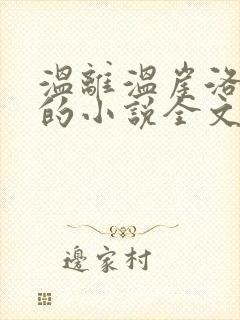 溫離溫崖洛
的小說全文
邊家村